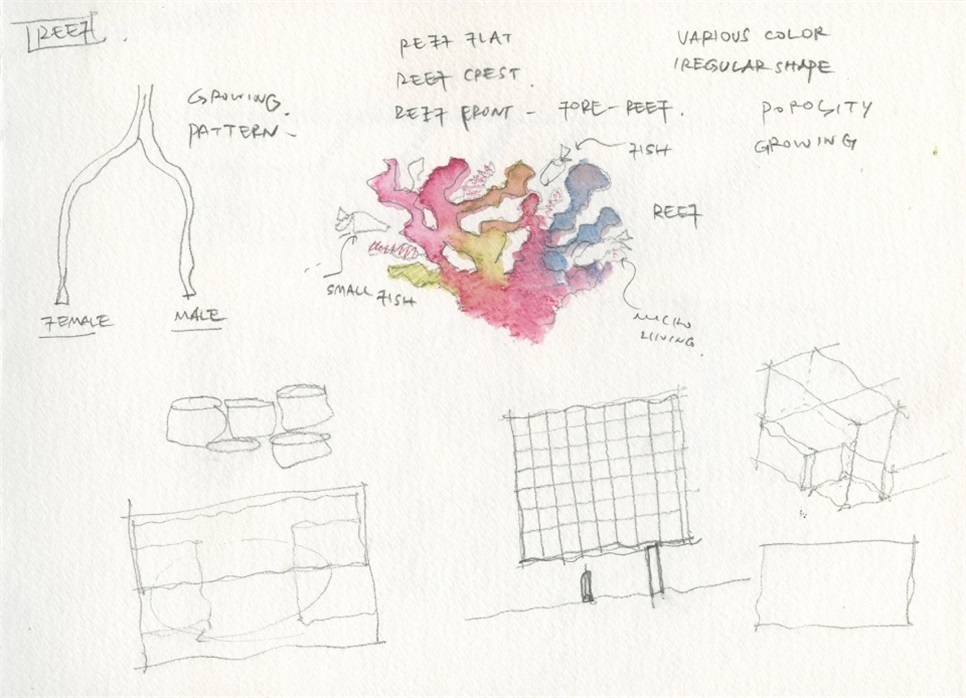 REEF
GROWING
PATTERN
FEMALE
MALE
REEF FLAT
REEF CREST
REEF FRONT - FORE-REEF.
VARIOUS COLOR
IREGULAR SHAPE
POROSITY
GROWING
FISH
REEF
SMALL FISH
MICRO
LIVING.